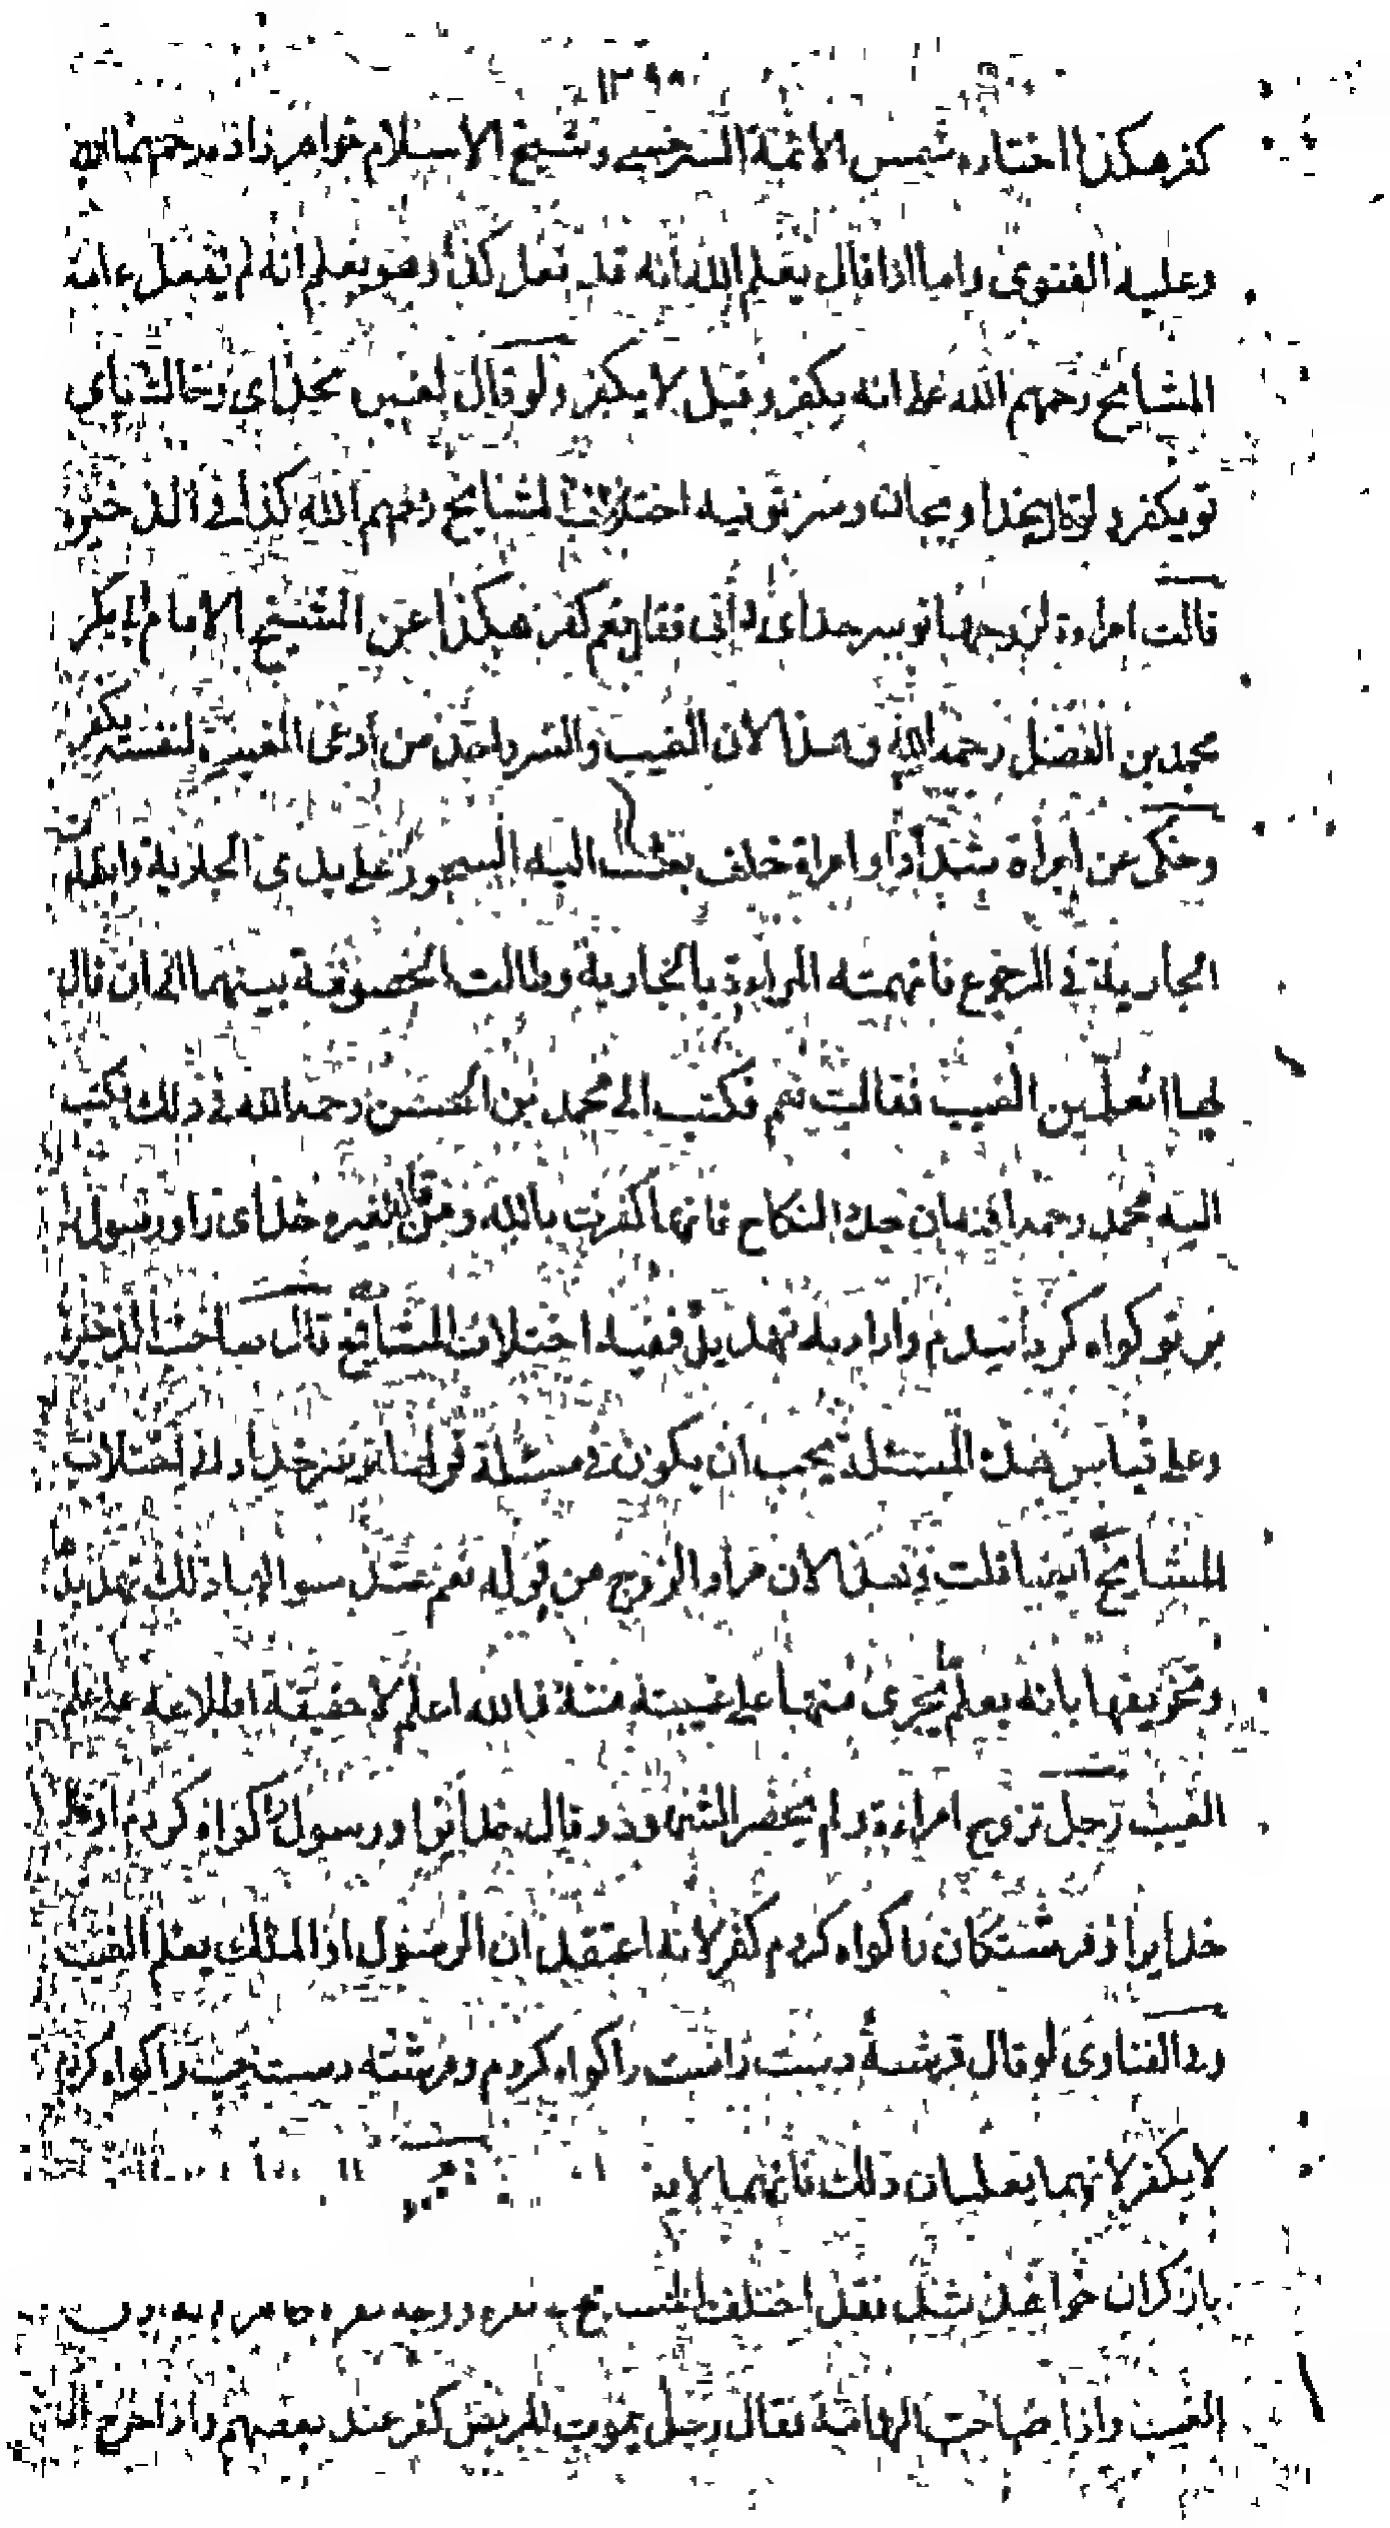 ١٣٩٠
كفر هكذا اختاره شمس الائمة السرخسي وشيخ الاسلام خواهر زاده رحمهما الله
وعليه الفتوى واما اذا قال يعلم الله انه قد فعل كذا وهو يعلم انه لم يفعل عامة
المشايخ رحمهم الله على انه يكفر وقيل لا يكفر ولو قال لغيره بخداى وخاك پاى
تو يكفر ولو قال بخدا وبجان وسر تو فيه اختلاف المشايخ رحمهم الله كذا في الذخيرة
قالت امراءة لزوجها تو سر خداى دانى فقال نعم كفر هكذا عن الشيخ الامام ابي بكر
محمد بن الفضل رحمه الله وهذا لان الغيب والسر واحد من ادعى الغيب لنفسه يكفر
وحكى عن امرأة شداد او امراة خلف بعث اليه السحور على يدي الجارية وابطات
الجارية في الرجوع فاتهمته المراءة بالجارية وطالت الخصومة بينهما الى ان قال
لها اتعلمين الغيب فقالت نعم فكتب الى محمد بن الحسن رحمه الله في ذلك فكتب
اليه محمد رحمه الله ان جدد النكاح فانها كفرت بالله ومن قال لغيره خداى را ورسول را
بر تو كواه كردانيدم واراد به تهديده ففيه اختلاف المشايخ قال صاحب الذخيرة
وعلى قياس هذه المسئلة يجب ان يكون في مسئلة قولها تو سر خدا دانى اختلاف
المشايخ ايضا قلت في هذا لان مراد الزوج من قوله نعم عند سوالها ذلك تهديدها
وتخويفها بانه يعلم ما يجرى منها على غيبته منه فالله اعلم لا حقيقة اطلاعه على علم
الغيب رجل تزوج امراءة ولم يحضر الشهود وقال خدايرا ورسول را كواه كردم او قال
خدايرا وفرشتكان را كواه كردم كفر لانه اعتقد ان الرسول او الملك يعلم الغيب
وفي الفتاوى لو قال فرشتهٔ دست راست را كواه كردم وفرشته دست چپ را كواه كردم
لا يكفر لانهما يعلمان ذلك فانهما لا
بار كران خواهد شد فقد اختلف المشايخ
الغيب واذا صاحت الهامة فقال رجل يموت المريض كفر عند بعضهم واذا خرج الى